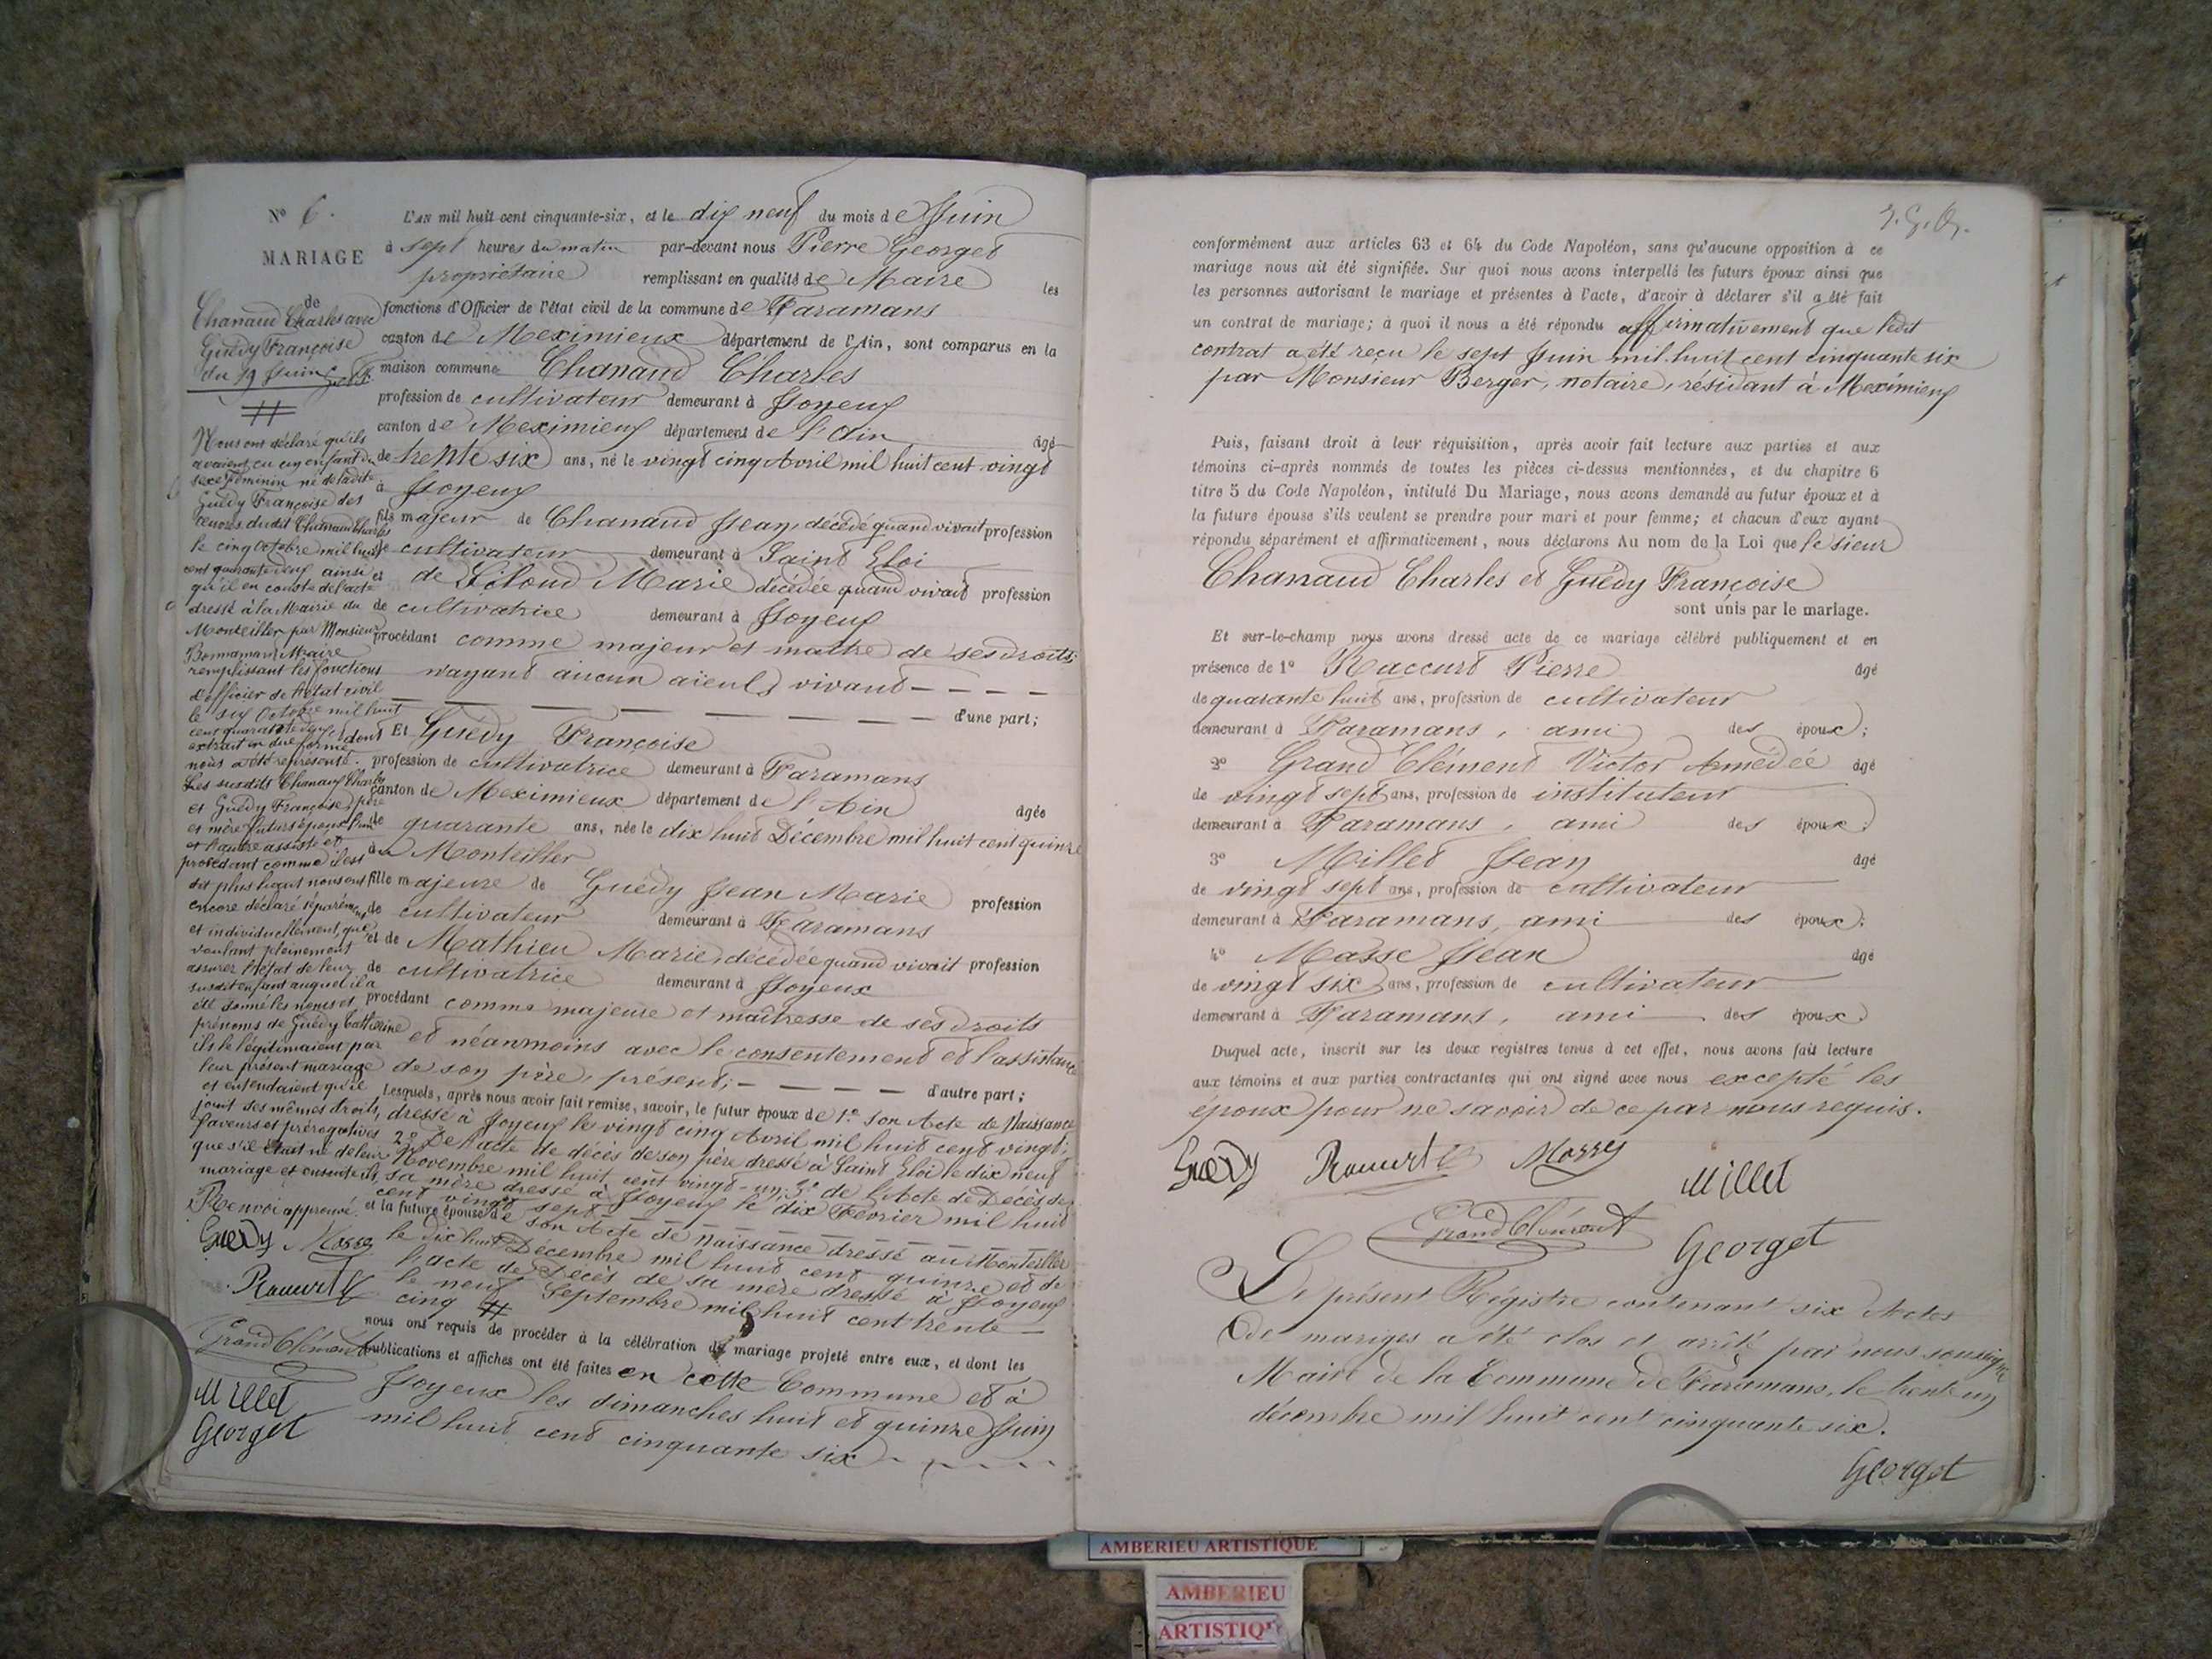 N° 6.
MARIAGE
de
Chanaud Charles avec
Guédy Françoise
du 19 Juin
L'AN mil huit cent cinquante-six, et le dix neuf du mois de Juin
à sept heures du matin par-devant nous Pierre Georget
propriétaire remplissant en qualité de Maire les
fonctions d'Officier de l'état civil de la commune de Faramans
canton de Meximieux département de l'Ain, sont comparus en la
maison commune Chanaud Charles
profession de cultivateur demeurant à Joyeux
canton de Meximieux département de l'Ain âgé
de trente six ans, né le vingt cinq Avril mil huit cent vingt
à Joyeux
fils majeur de Chanaud Jean, décédé quand vivait profession
de cultivateur demeurant à Saint Eloi
et de Marie décédée quand vivait profession
de cultivatrice demeurant à Joyeux
procédant comme majeur et maître de ses droits;
n'ayant aucun aïeuls vivant - - - -
d'une part;
Et Guédy Françoise
profession de cultivatrice demeurant à Faramans
canton de Meximieux département de l'Ain âgée
de quarante ans, née le dix huit Décembre mil huit cent quinze
au Montellier
fille majeure de Guédy Jean Marie profession
de cultivateur demeurant à Faramans
et de Mathieu Marie, décédée quand vivait profession
de cultivatrice demeurant à Joyeux
procédant comme majeure et maîtresse de ses droits
et néanmoins avec le consentement et l'assistance
de son père, présent; - - - - d'autre part;
Lesquels, après nous avoir fait remise, savoir, le futur époux de 1° son Acte de Naissance
dressé à Joyeux le vingt cinq Avril mil huit cent vingt;
2° De l'acte de décès de son père dressé à Saint Eloi le dix neuf
Novembre mil huit cent vingt-un; 3° de l'Acte de Décès de
sa mère dressé à Joyeux le dix Février mil huit
cent vingt sept
et la future épouse de son Acte de Naissance dressé au Montellier
le dix huit Décembre mil huit cent quinze et de
l'acte de Décès de sa mère dressé à Joyeux
le neuf Septembre mil huit cent trente
cinq #
nous ont requis de procéder à la célébration du mariage projeté entre eux, et dont les
publications et affiches ont été faites en cette Commune et à
Joyeux les dimanches huit et quinze Juin
mil huit cent cinquante six
#
Nous ont déclaré qu'ils
avaient eu un enfant du
sexe féminin né de ladite
Guédy Françoise des
œuvres dudit Chanaud Charles
le cinq Octobre mil huit
cent quarante deux ainsi
qu'il en conste de l'acte
dressé à la Mairie du
Montellier par Monsieur
Maire
remplissant les fonctions
d'officier de l'état civil
le six Octobre mil huit
cent quarante deux, dont
extrait en due forme
nous a été représenté.
Les susdits Chanaud Charles
et Guédy Françoise, père
et mère futurs époux l'un
et l'autre assisté et
procédant comme il est
dit plus haut nous ont
encore déclaré séparément
et individuellement, que
voulant pleinement
assurer l'état de leur
susdit enfant auquel il a
été donné les noms et
prénoms de Guédy Catherine
ils le légitimaient par
leur présent mariage
et entendaient qu'il
jouit des mêmes droits,
faveurs et prérogatives
que s'il était né de leur
mariage et
Renvoi approuvé.
Guédy
Grand Clément
Millet
Georget
conformément aux articles 63 et 64 du Code Napoléon, sans qu'aucune opposition à ce
mariage nous ait été signifiée. Sur quoi nous avons interpellé les futurs époux ainsi que
les personnes autorisant le mariage et présentes à l'acte, d'avoir à déclarer s'il a été fait
un contrat de mariage; à quoi il nous a été répondu affirmativement que ledit
contrat a été reçu le sept Juin mil huit cent cinquante six
par Monsieur Berger, notaire, résidant à Meximieux
Puis, faisant droit à leur réquisition, après avoir fait lecture aux parties et aux
témoins ci-après nommés de toutes les pièces ci-dessus mentionnées, et du chapitre 6
titre 5 du Code Napoléon, intitulé Du Mariage, nous avons demandé au futur époux et à
la future épouse s'ils veulent se prendre pour mari et pour femme; et chacun d'eux ayant
répondu séparément et affirmativement, nous déclarons Au nom de la Loi que le sieur
Chanaud Charles et Guédy Françoise
sont unis par le mariage.
Et sur-le-champ nous avons dressé acte de ce mariage célébré publiquement et en
présence de 1° Raccurt Pierre âgé
de quarante huit ans, profession de cultivateur
demeurant à Faramans, ami des époux;
2° Grand Clément Victor Amédée âgé
de vingt sept ans, profession de instituteur
demeurant à Faramans, ami des époux;
3° Millet Jean âgé
de vingt sept ans, profession de cultivateur
demeurant à Faramans, ami des époux;
4° Masse Jean âgé
de vingt six ans, profession de cultivateur
demeurant à Faramans, ami des époux.
Duquel acte, inscrit sur les deux registres tenus à cet effet, nous avons fait lecture
aux témoins et aux parties contractantes qui ont signé avec nous excepté les
époux pour ne savoir de ce par nous requis.
Guédy
Millet
Grand Clément
Georget
Le présent Régistre contenant six Actes
de mariges a été clos et arrêté par nous soussigné
Maire de la Commune de Faramans, le trente un
décembre mil huit cent cinquante six.
Georget
AMBERIEU ARTISTIQUE
AMBERIEU
ARTISTIQUE